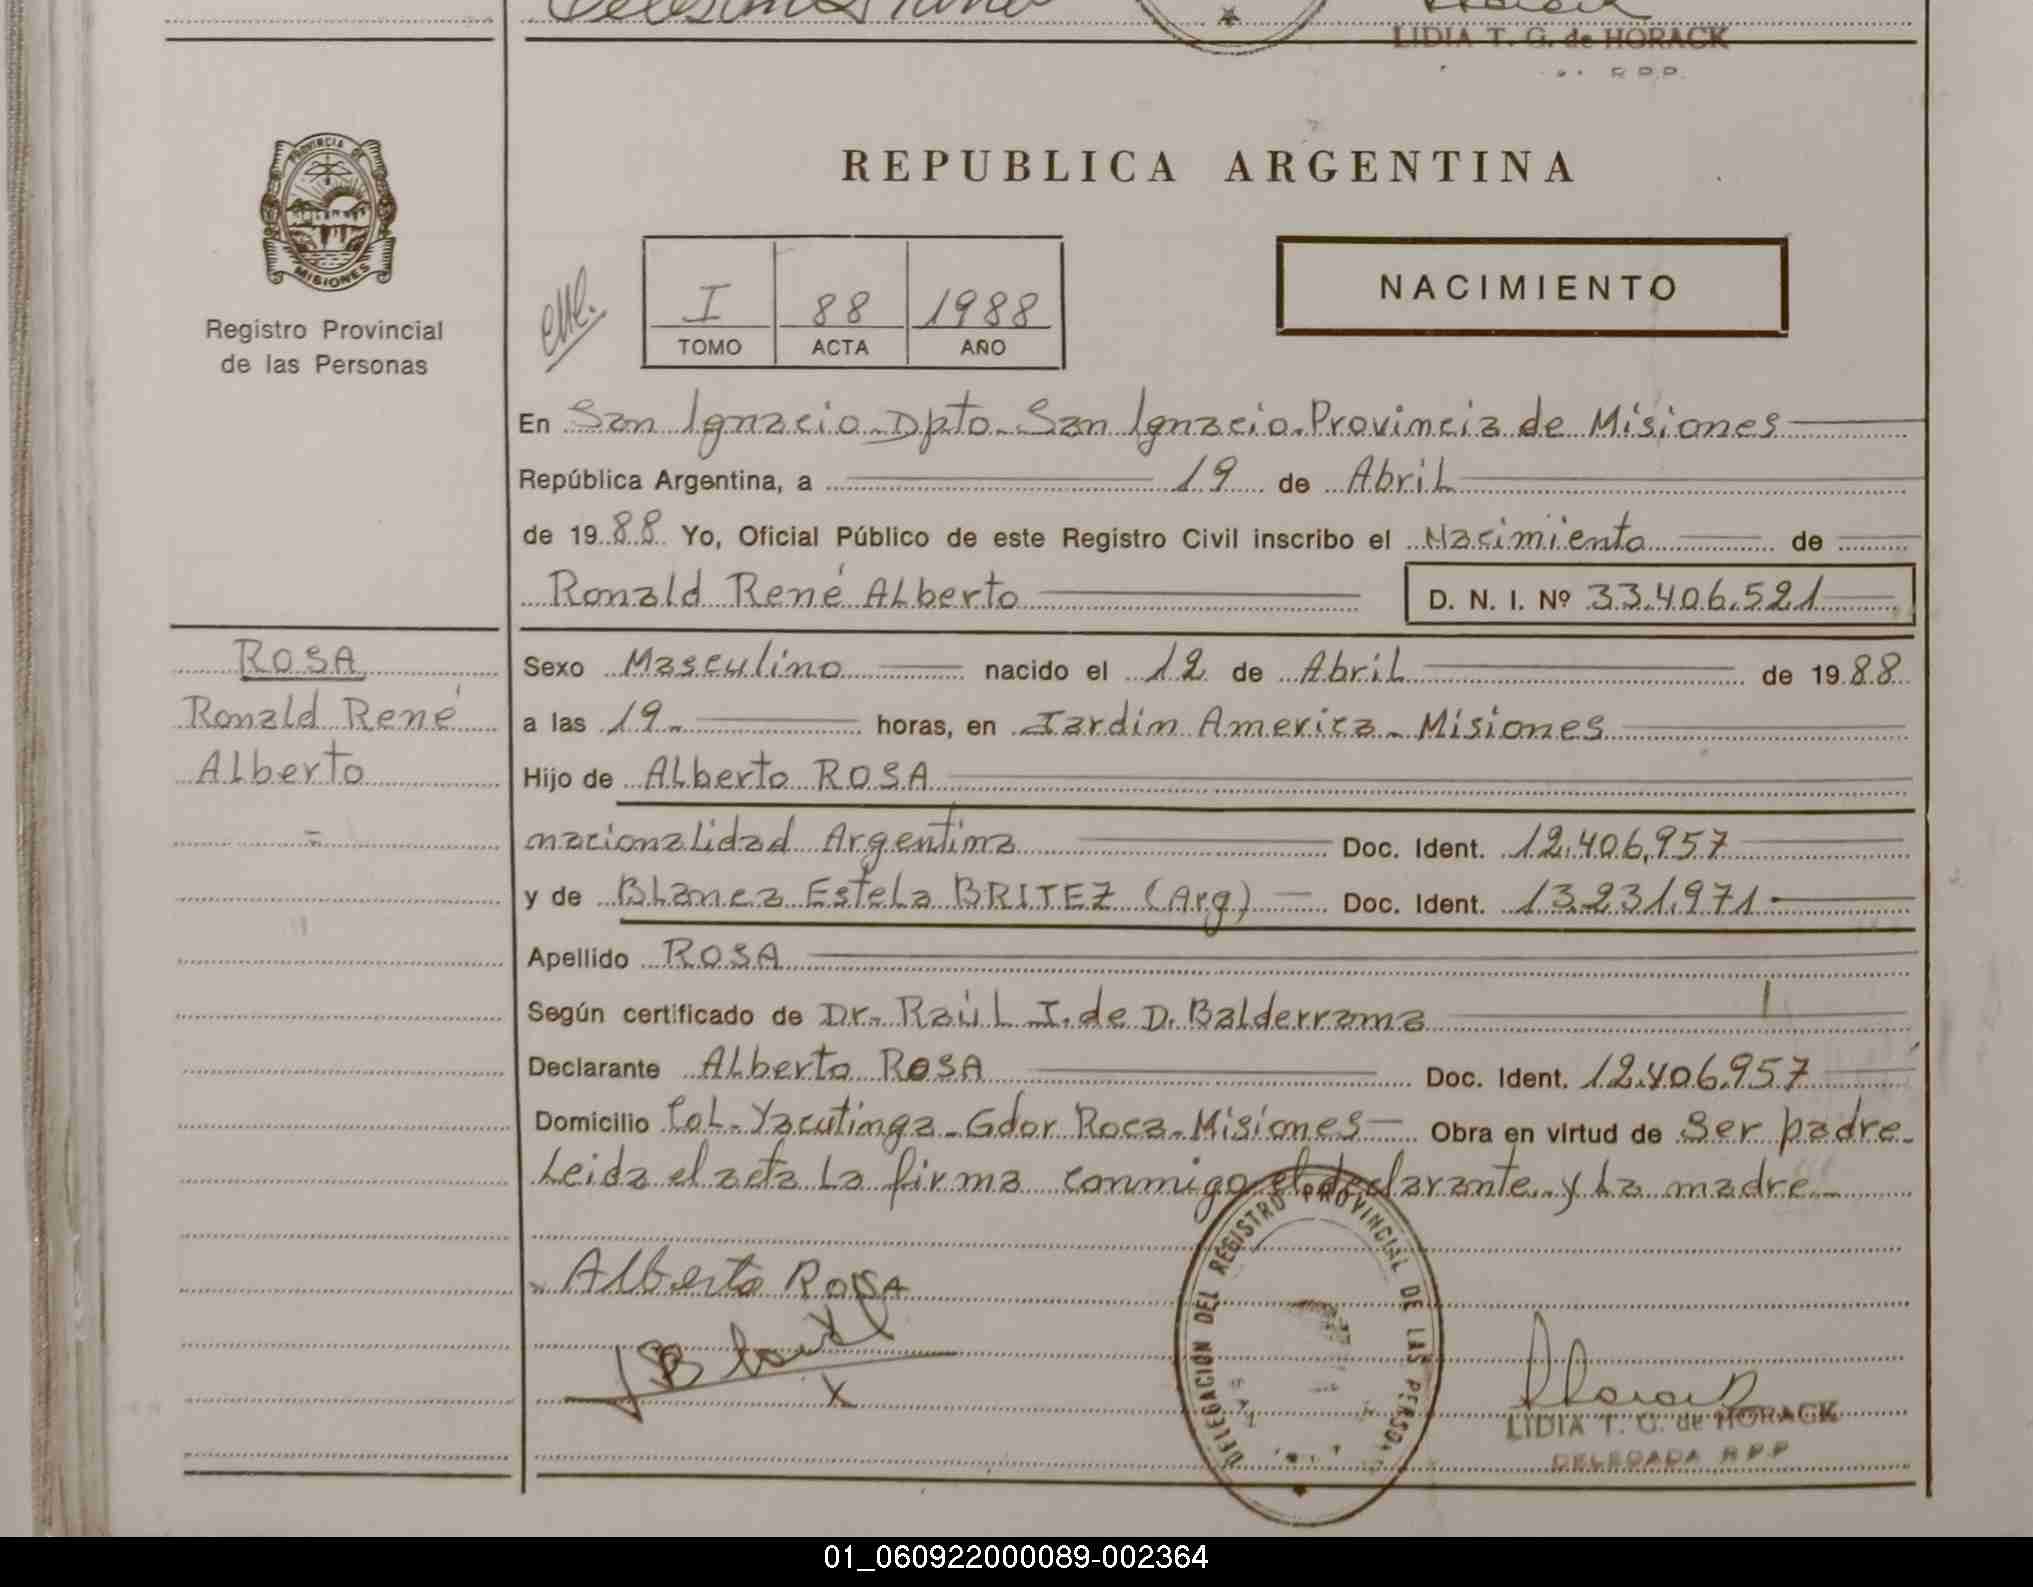 LIDIA T. G. de HORACK
R.P.P.
PROVINCIA DE
MISIONES
Registro Provincial
de las Personas
REPUBLICA ARGENTINA
NACIMIENTO
I 88 1988
TOMO ACTA AÑO
En San Ignacio Dpto. San Ignacio. Provincia de Misiones
República Argentina, a 19 de Abril
de 1988 Yo, Oficial Público de este Registro Civil inscribo el Nacimiento de
Ronald René Alberto D. N. I. Nº 33.406.521
ROSA
Ronald René
Alberto
Sexo Masculino nacido el 12 de Abril de 1988
a las 19. horas, en Jardin America. Misiones
Hijo de Alberto ROSA
nacionalidad Argentina Doc. Ident. 12.406.957
y de Blanca Estela BRITEZ (Arg) Doc. Ident. 13.231.971
Apellido ROSA
Según certificado de Dr. Raúl I. de D. Balderrama
Declarante Alberto ROSA Doc. Ident. 12.406.957
Domicilio Col. Yacutinga. Gdor Roca. Misiones Obra en virtud de Ser padre.
Leida el acta la firma conmigo el declarante y la madre
Alberto ROSA
DELEGACIÓN DEL REGISTRO PROVINCIAL DE LAS PERSO.
LIDIA T. G. de HORACK
DELEGADA R.P.P
01_060922000089-002364